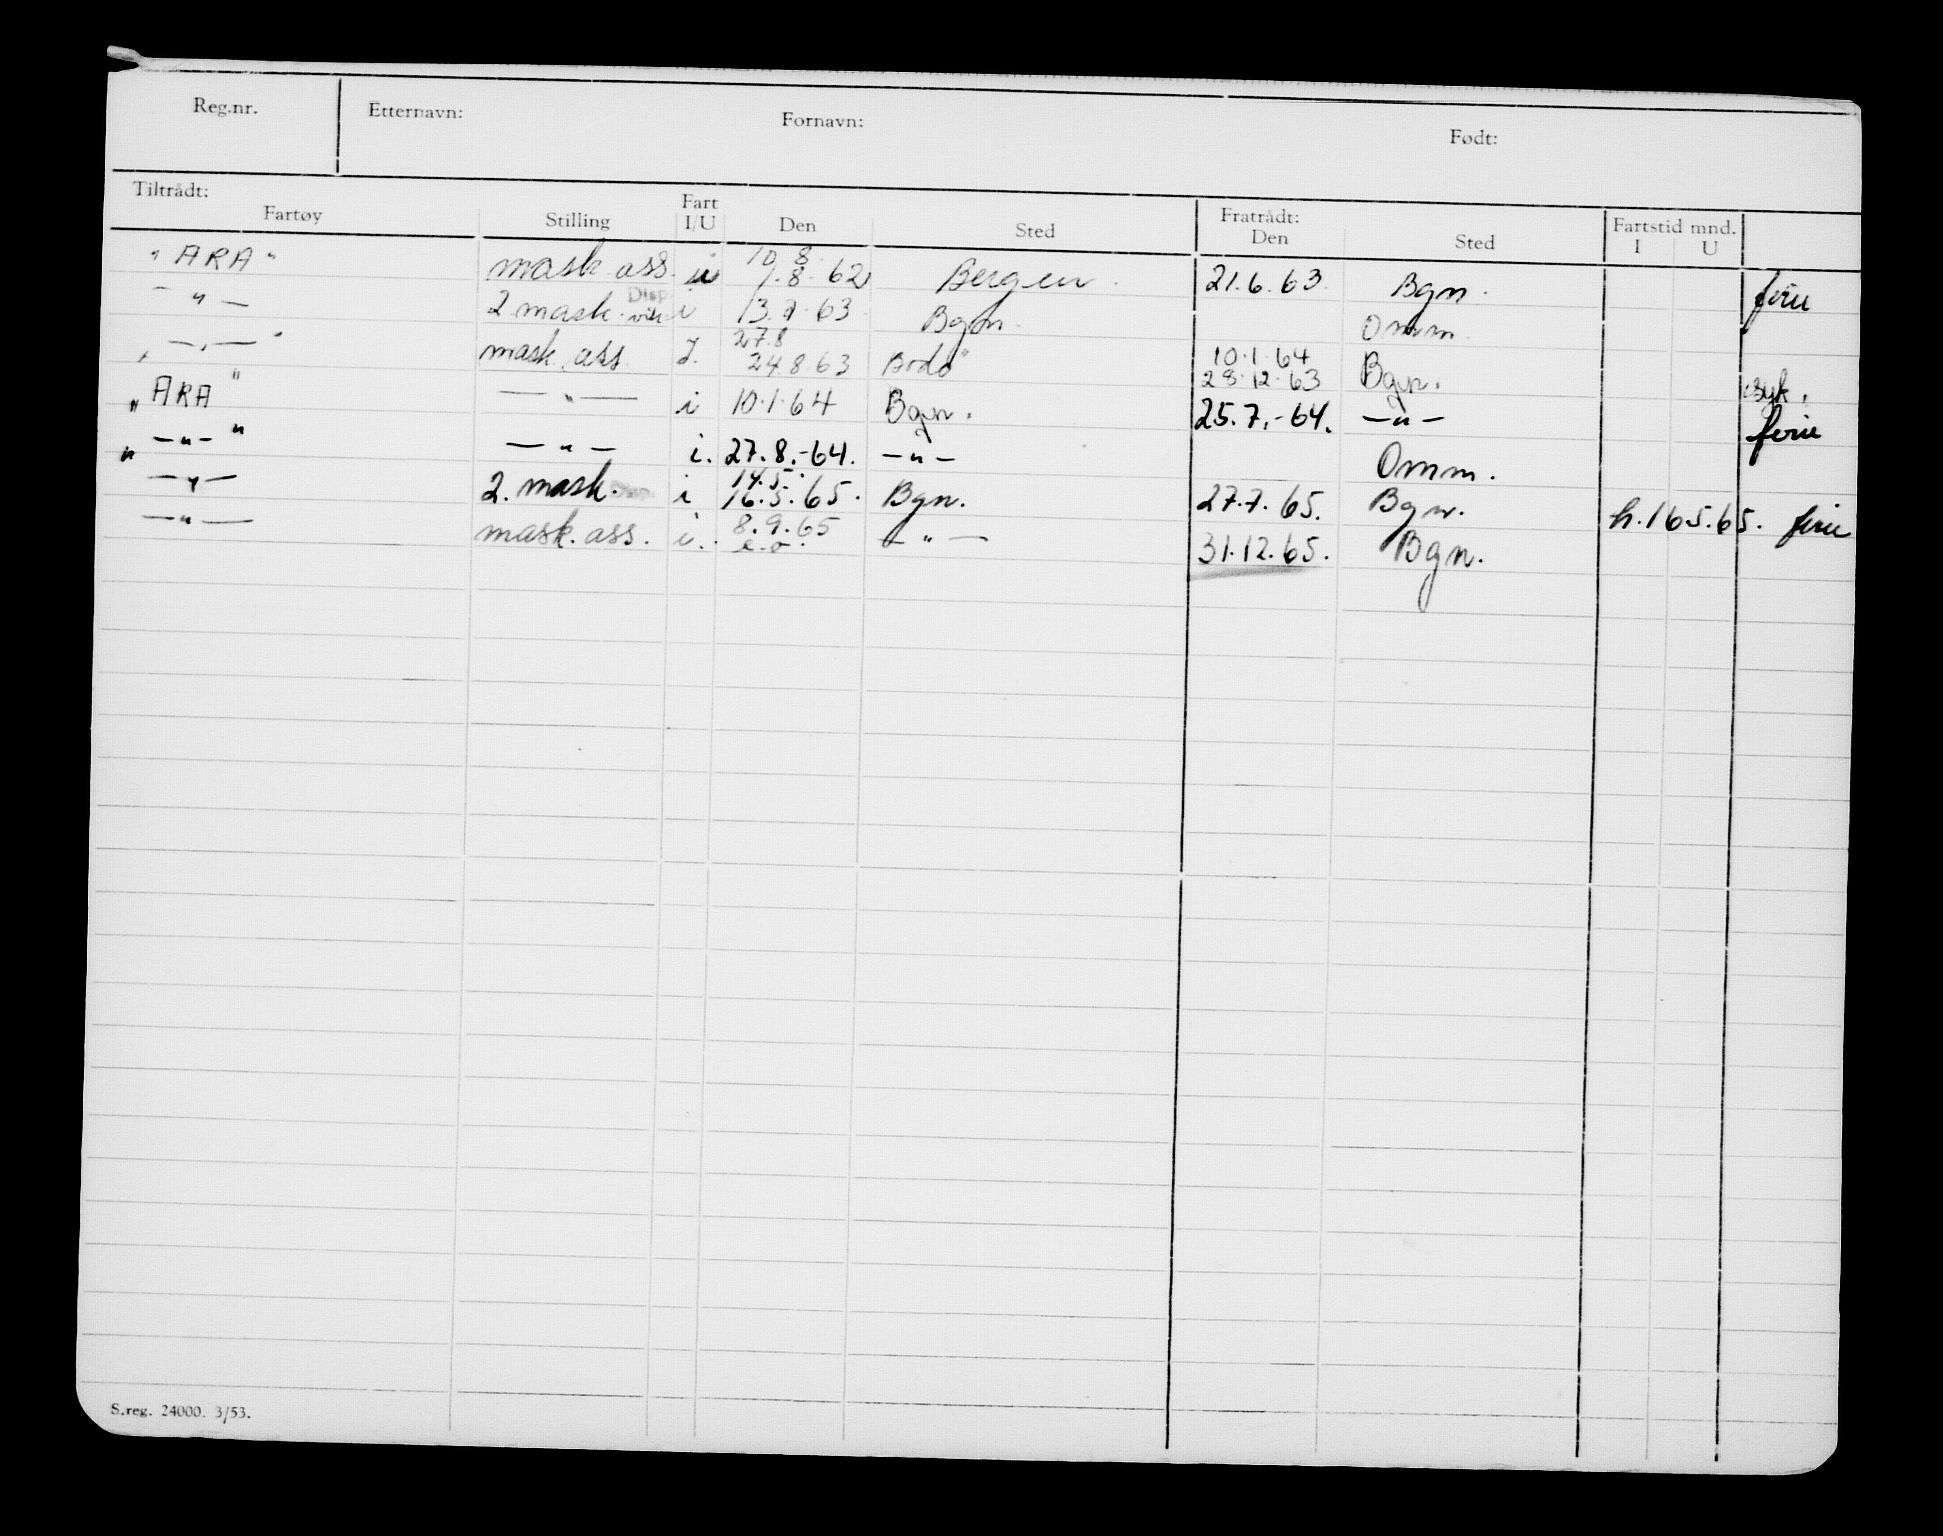 Reg.nr. Etternavn: Fornavn: Født:
Tiltrådt: Fart Fratrådt: Fartstid mnd.
Fartøy Stilling I/U Den Sted Den Sted I U
10 8.
"ARA" mask. ass. 1.8.62 Bergen 21.6.63. Bgn. ferie
— " — 2 mask. Disp vik i 13.7.63 Bgn. Omm.
27.8 10.1.64
" — " — " mask. ass I. 24.8.63 Bodø 28.12.63 Bgn. syk.
"ARA" — " — i 10.1.64 Bgn. 25.7.-64. — " — ferie
" — " — " — " — i. 27.8.-64. — " — Omm.
14.5.
— " — 2. mask. i 16.5.65. Bgn. 27.7.65. Bgn. h. 16.5.65. ferie
— " — mask. ass. i. 8.9.65 — " — 31.12.65. Bgn.
e.o.
S.reg. 24000. 3/53.